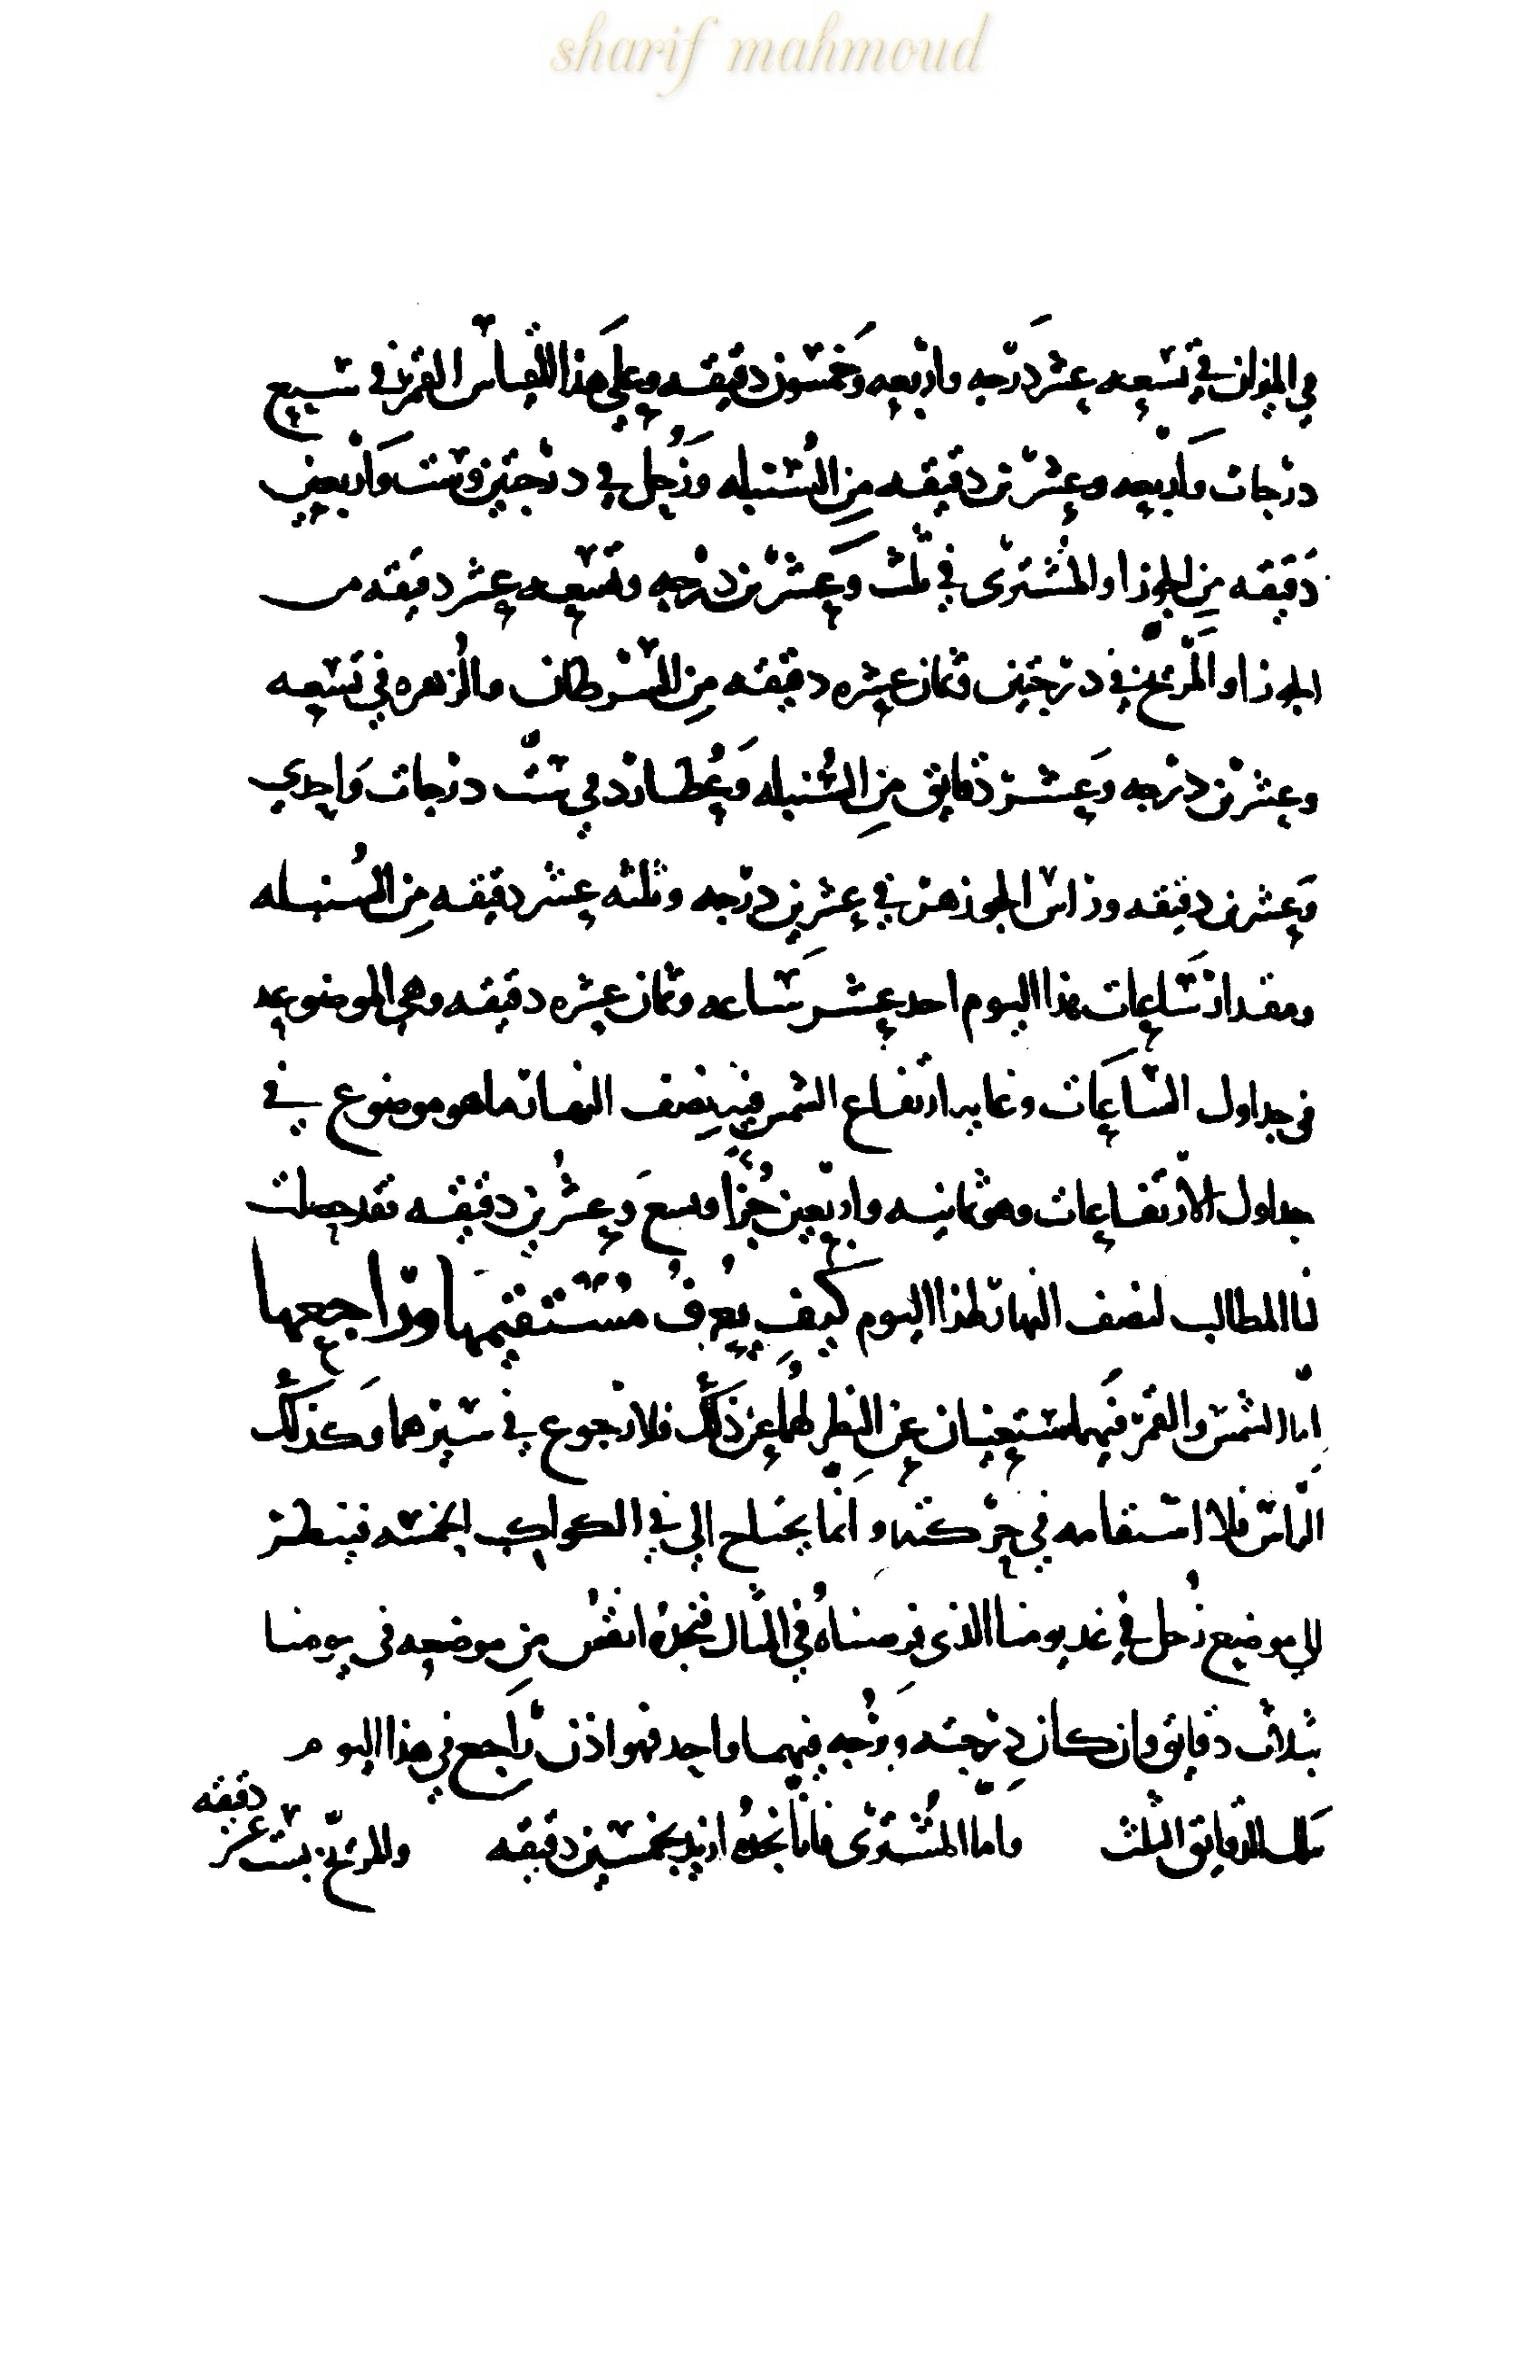 sharif mahmoud
في الميزان في تسعه عشر درجه واربعه وخمسون دقيقه وعلى هذا القياس القمر في سبع
درجات واربعه وعشرين دقيقه من السنبله وزحل في درجتين وست واربعين
دقيقه من الجوزا والمشترى في ثلث وعشرين درجه وتسعه عشر دقيقه من
الجوزا والمريخ في درجتين وثمان عشره دقيقه من السرطان والزهره في تسعه
وعشرين درجه وعشر دقايق من السنبله وعطارد في ست درجات واحدي
وعشرين دقيقه وراس الجوزهر في عشرين درجه وثلثه عشر دقيقه من السنبله
ومقدار ساعات هذا اليوم احد عشر ساعه وثمان عشره دقيقه وهي الموضوعه
فى جداول الساعات وغايه ارتفاع الشمس فيه نصف النهار ما هو موضوع في
جداول الارتفاعات وهو ثمانيه واربعين جزا وسبع وعشرين دقيقه فقد حصلت
لنا المطالب لنصف النهار لهذا اليوم كيف يعرف مستقيمها وراجعها
اما الشمس والقمر فهما مستغنيان عن النظر لهما عن ذلك فلا رجوع في سيرهما وكذلك
الراس فلا استقامه في حركته وانما يحتاج الى في الكواكب الخمسه فينظر
الي موضع زحل في غد يومنا الذى فرضناه في المثال فنجده انقص من موضعه فى يومنا
بثلاث دقايق وان كان درجته وبرجه فيهما واحد فهو اذن راجع في هذا اليوم
بتلك الدقايق الثلث واما المشترى فانا نجده ازيد بخمسين دقيقه والمريخ بست عشر دقيقه